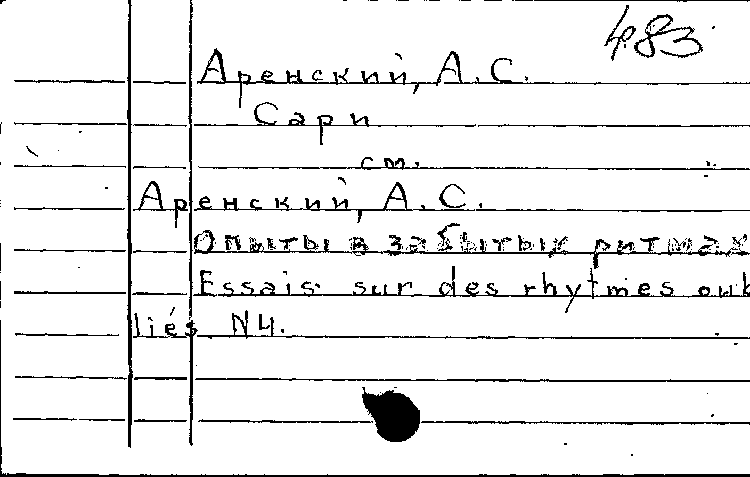 483
Аренский, А.С.
Сари
см.
Аренский, А.С.
Опыты в забытых ритмах
Essais sur des rhytmes oub
liés N4.